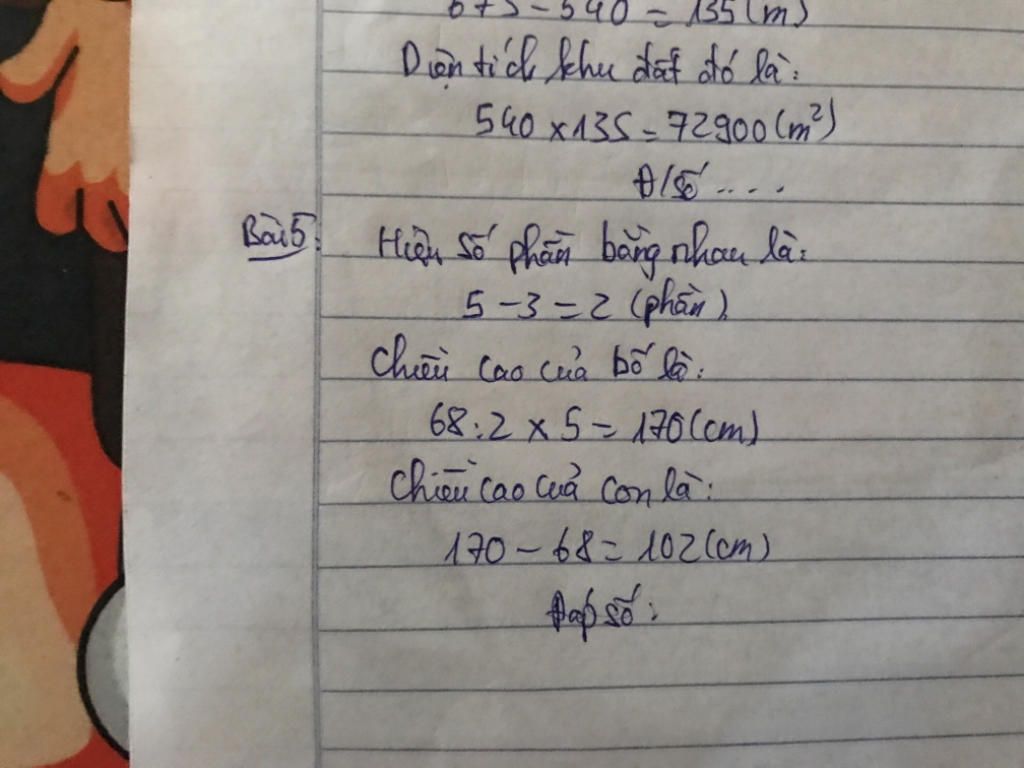 675 - 540 = 135 (m)
Diện tích khu đất đó là:
540 x 135 = 72900 (m²)
Đ/số ....
Bài 5: Hiệu số phần bằng nhau là:
5 - 3 = 2 (phần)
Chiều cao của bố là:
68 : 2 x 5 = 170 (cm)
Chiều cao của con là:
170 - 68 = 102 (cm)
Đáp số: